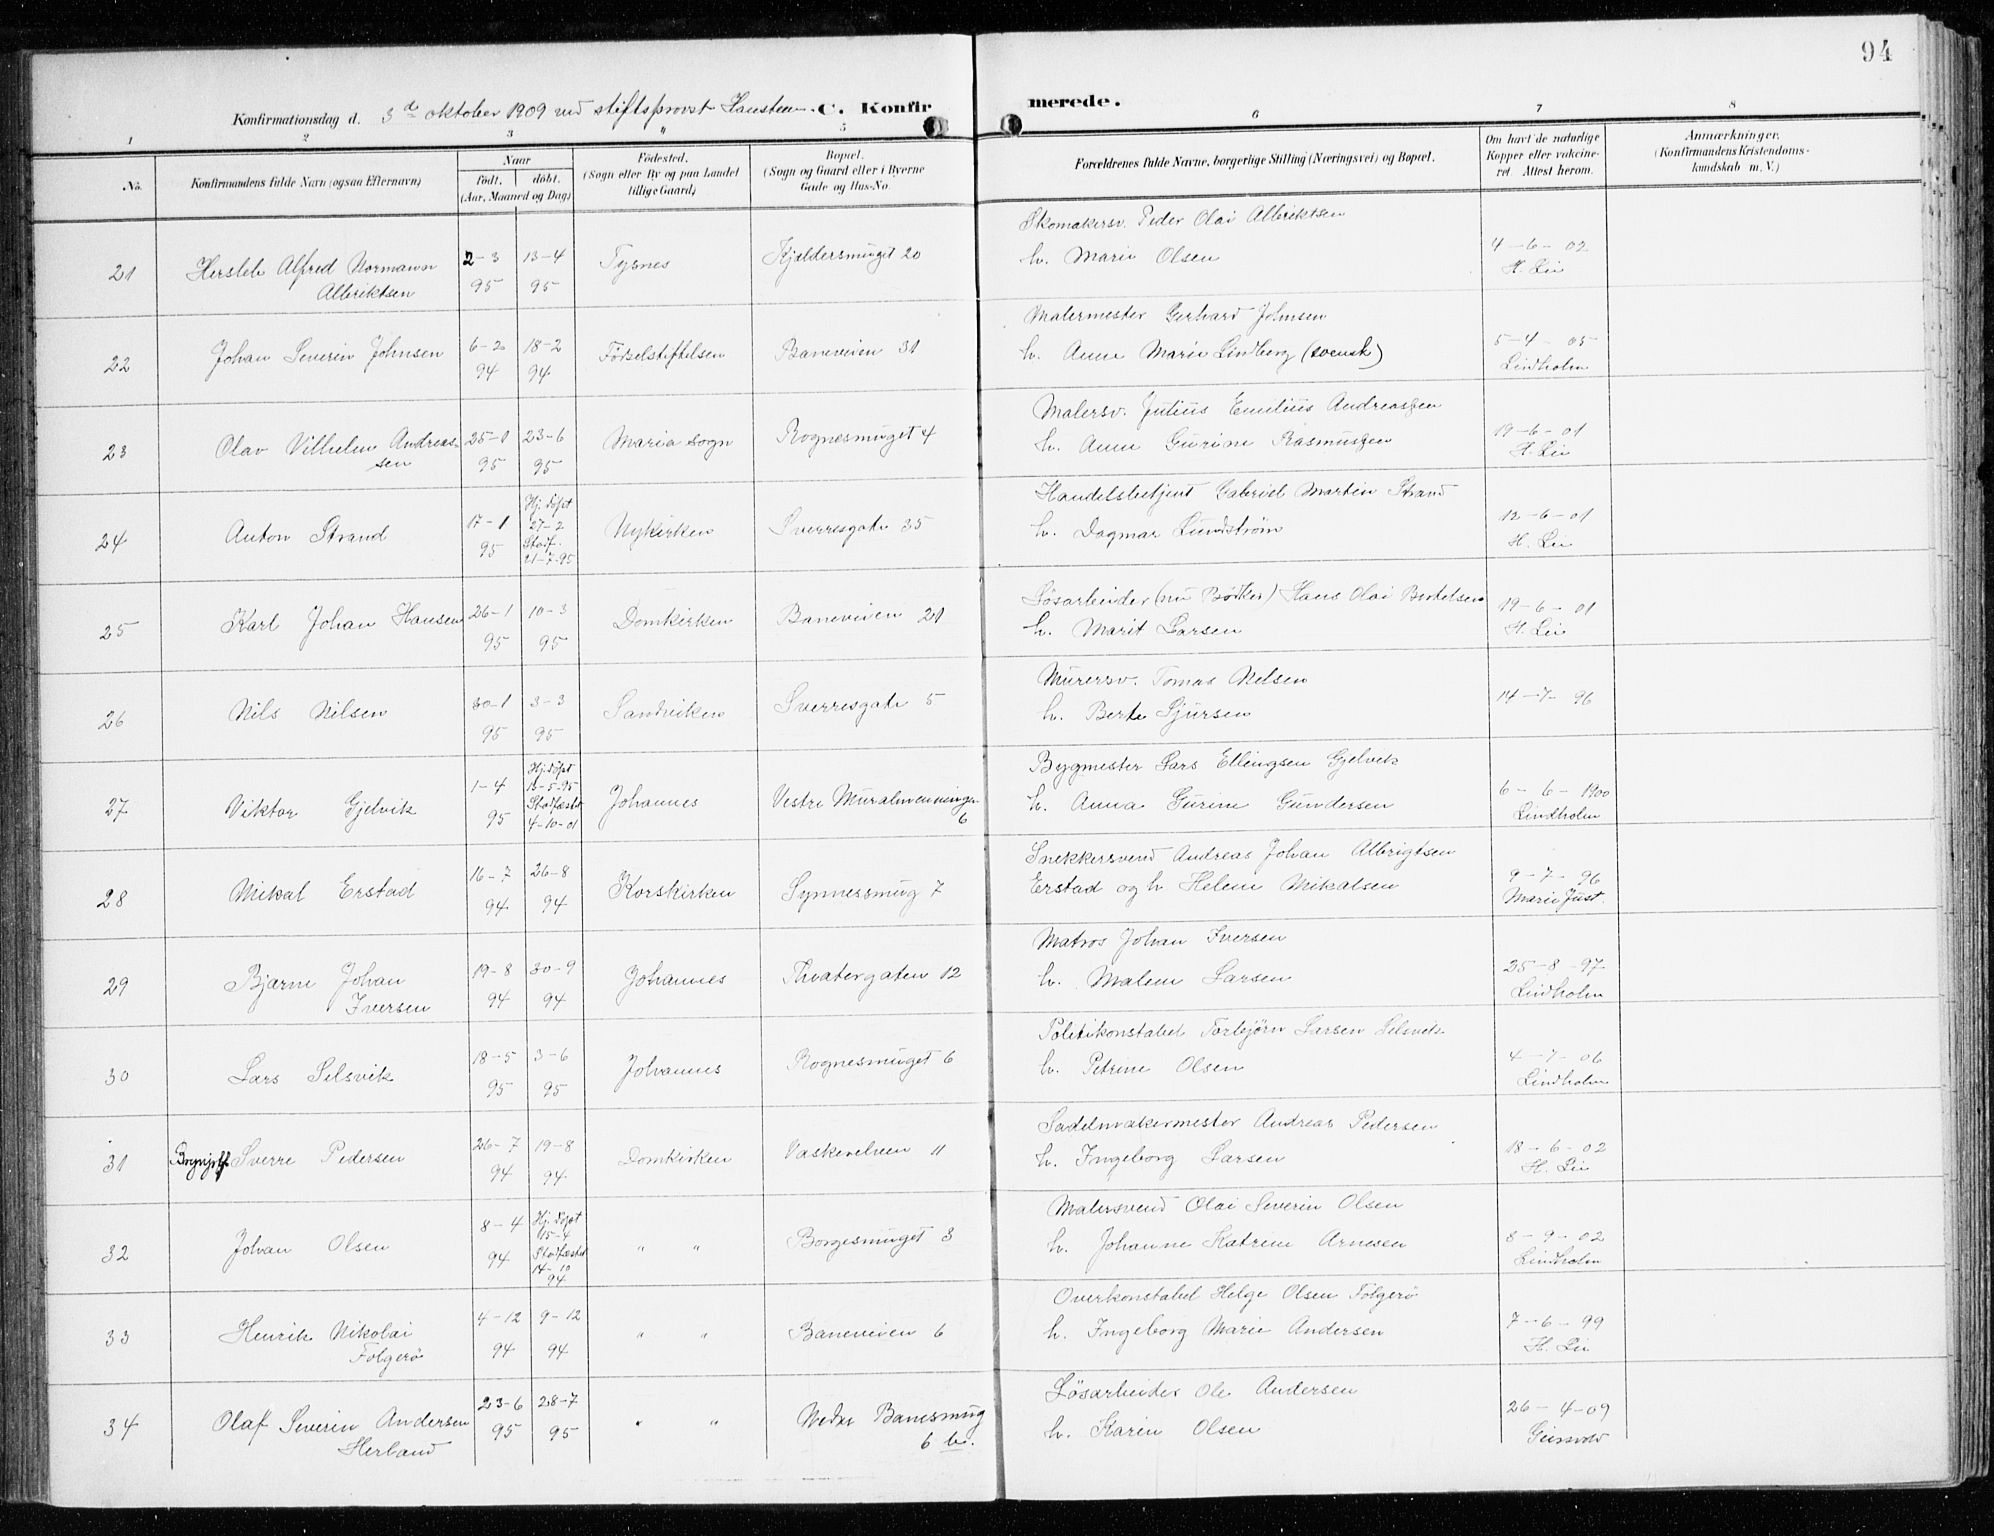 94
Konfirmationsdag d. 3d oktober 1909 ved stiftsprovst Hansteen. C. Konfir merede.
1 2 3 4 5 6 7 8
No. Konfirmandens fulde Navn (ogsaa Efternavn)
Naar
født, døbt.
(Aar, Maaned og Dag)
Fødested.
(Sogn eller By og paa Landet
tillige Gaard)
Bopæl.
(Sogn og Gaard eller i Byerne
Gade og Hus-No.
Forældrenes fulde Navne, borgerlige Stilling (Næringsvei) og Bopæl.
Om havt de naturlige
Kopper eller vakcine-
ret. Attest herom.
Anmærkninger.
(Konfirmandens Kristendoms-
kundskab m. V.)
21 Hersleb Alfred Normann 2-3 13-4 Tysnes Kjeldersmuget 20
Albriktsen 95 95
Skomakersv. Peder Olai Albriktsen
h. Marie Olsen
4-6-02
H. Lie
22 Johan Severin Johnsen 6-2 18-2 Fødselstiftelsen Baneveien 31
94 94
Malermester Gerhard Johnsen
h. Anna Marie Lindberg (svensk)
5-4-05
Lindholm
23 Olav Vilhelm Andreas- 25-1 23-6 Maria sogn Rognesmuget 4
sen 95 95
Malersv. Julius Emilius Andreassen
h. Anne Gurine Rasmussen
19-6-01
H. Lie
24 Anton Strand 17-1 95 Hj. døpt
27-2
Stadf.
21-7-95
Nykirken Sverresgate 35
Handelsbetjent Gabriel Martin Strand
h. Dagmar Lundstrøm
12-6-01
H. Lie
25 Karl Johan Hansen 26-1 10-3 Domkirken Baneveien 21
95 95
Løsarbeider (nu Bødker) Hans Olai Bertelsen
h. Marit Larsen
19-6-01
H. Lie
26 Nils Nilsen 30-1 3-3 Sandviken Sverresgate 5
95 95
Murersv. Tomas Nelsen
h. Berte Sjursen
14-7-96
27 Viktor Gjelvik 1-4 95 Hj. døpt
13-5-95
Stadfæstet
4-10-01
Johannes Vestre Muralmenningen
6
Bygmester Lars Ellingsen Gjelvik
h. Anna Gurine Gundersen
6-6-1900
Lindholm
28 Mikal Erstad 16-7 26-8 Korskirken Synnessmug 7
94 94
Snekkersvend Andreas Johan Albrigtsen
Erstad og h. Helene Mikalsen
9-7-96
Marie Just.
29 Bjarne Johan 19-8 30-9 Johannes Theatergaten 12
Iversen 94 94
Matros Johan Iversen
h. Malene Larsen
25-8-97
Lindholm
30 Lars Selsvik 18-5 3-6 Johannes Rognesmuget 6
95 95
Politikonstabel Torbjørn Larsen Selsvik
h. Petrine Olsen
4-7-06
Lindholm
31 Brynjulf Sverre Pedersen 26-7 19-8 Domkirken Vaskerelven 11
94 94
Sadelmakermester Andreas Pedersen
h. Ingeborg Larsen
18-6-02
H. Lie
32 Johan Olsen 8-4 94 Hj. døpt
15-4
Stadfæstet
14-10
94
" " Borgesmuget 3
Malersvend Olai Severin Olsen
h. Johanne Katrine Arnesen
8-9-02
Lindholm
33 Henrik Nikolai 4-12 9-12 " " Baneveien 6
Folgerø 94 94
Overkonstabel Helge Olsen Folgerø
h. Ingeborg Marie Andersen
7-6-99
H. Lie
34 Olaf Severin Andersen 23-6 28-7 " " Nedre Banesmug
Herland 95 95 6 b.
Løsarbeider Ole Andersen
h. Karen Olsen
26-4-09